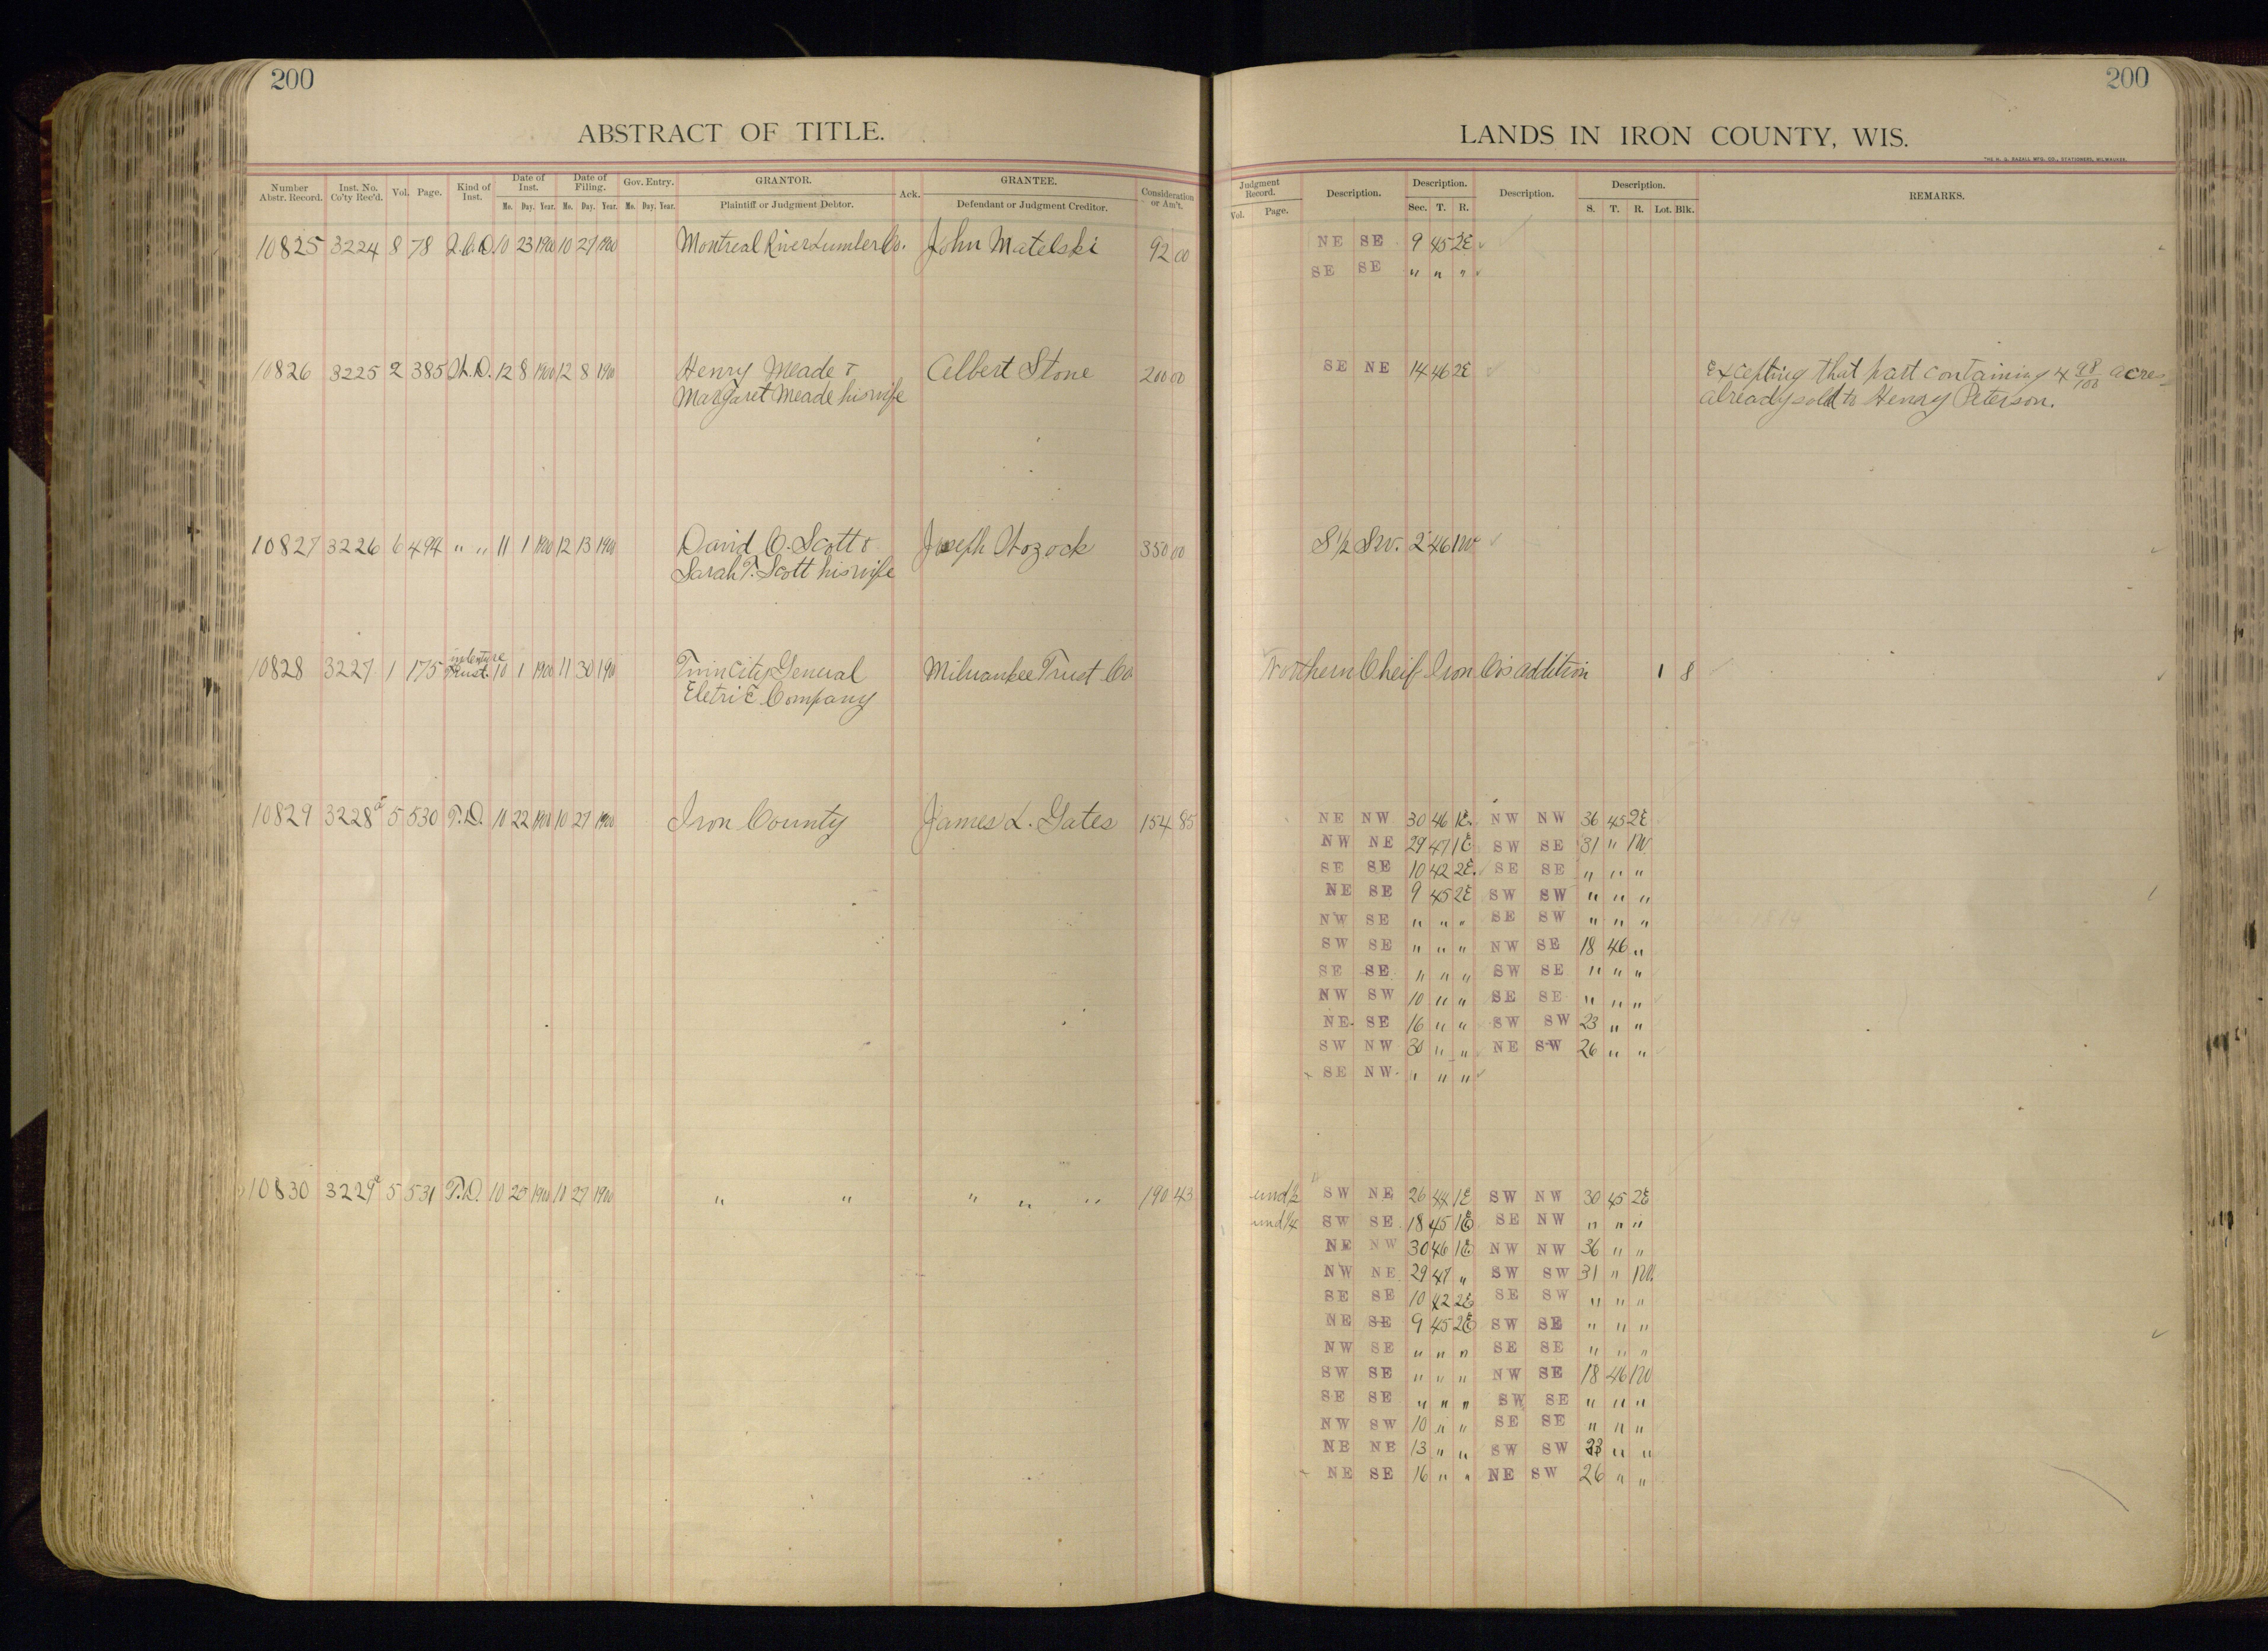 200
ABSTRACT OF TITLE.
Number Abstr. Record. Inst. No. Co'ty Rec'd. Vol. Page. Kind of Inst. Date of Inst. Date of Filing. Gov. Entry. GRANTOR. Ack. GRANTEE. Consideration or Am't.
Mo. Day. Year. Mo. Day. Year. Mo. Day. Year. Plaintiff or Judgment Debtor. Defendant or Judgment Creditor.
10825 3224 8 78 Q.C.D. 10 23 1900 10 27 1900 Montreal River Lumber Co. John Matelski 92 00
10826 3225 2 385 W.D. 12 8 1900 12 8 1900 Henry Meade & Albert Stone 200 00
Margaret Meade his wife
10827 3226 6 494 " " 11 1 1900 12 13 1900 David C. Scott & Joseph 350 00
Sarah T. Scott his wife
10828 3227 1 175 indenture Trust. 10 1 1900 11 30 190 Twin City General Milwaukee Trust Co
Eletric Company
10829 3228a 5 530 T.D. 10 22 1900 10 27 1900 Iron County James L. Gates 154 85
10830 3229a 5 531 T.D. 10 1900 10 27 1900 " " " " " 190 43
200
LANDS IN IRON COUNTY, WIS.
THE H. G. RAZALL MFG. CO., STATIONERS, MILWAUKEE.
Judgment Record. Description. Description. Description. Description. REMARKS.
Vol. Page. Sec. T. R. S. T. R. Lot. Blk.
NE SE 9 45 2E
SE SE " " "
SE NE 14 46 2E Excepting that part containing 4 98/100 acres
already sold to Henry Peterson.
S 1/2 SW. 2 46 1W
Northern Cheif Iron Co's addition 1 8
NE NW 30 46 1E. NW NW 36 45 2E
NW NE 29 47 1E SW SE 31 " 1W
SE SE 10 42 2E. SE SE " " "
NE SE 9 45 2E SW SW " " "
NW SE " " " SE SW " " "
SW SE " " " NW SE 18 46 "
SE SE " " " SW SE " " "
NW SW 10 " " SE SE " " "
NE SE 16 " " SW SW 23 " "
SW NW 30 " " NE SW 26 " "
SE NW " " "
und 1/2 SW NE 26 44 1E SW NW 30 45 2E
und 1/4 SW SE 18 45 1E SE NW " " "
NE NW 30 46 1E. NW NW 36 " "
NW NE 29 47 " SW SW 31 " 1W.
SE SE 10 42 2E SE SW " " "
NE SE 9 45 2E SW SE " " "
NW SE " " " SE SE " " "
SW SE " " " NW SE 18 46 1W
SE SE " " " SW SE " " "
NW SW 10 " " SE SE " " "
NE NE 13 " " SW SW 23 " "
NE SE 16 " " NE SW 26 " "